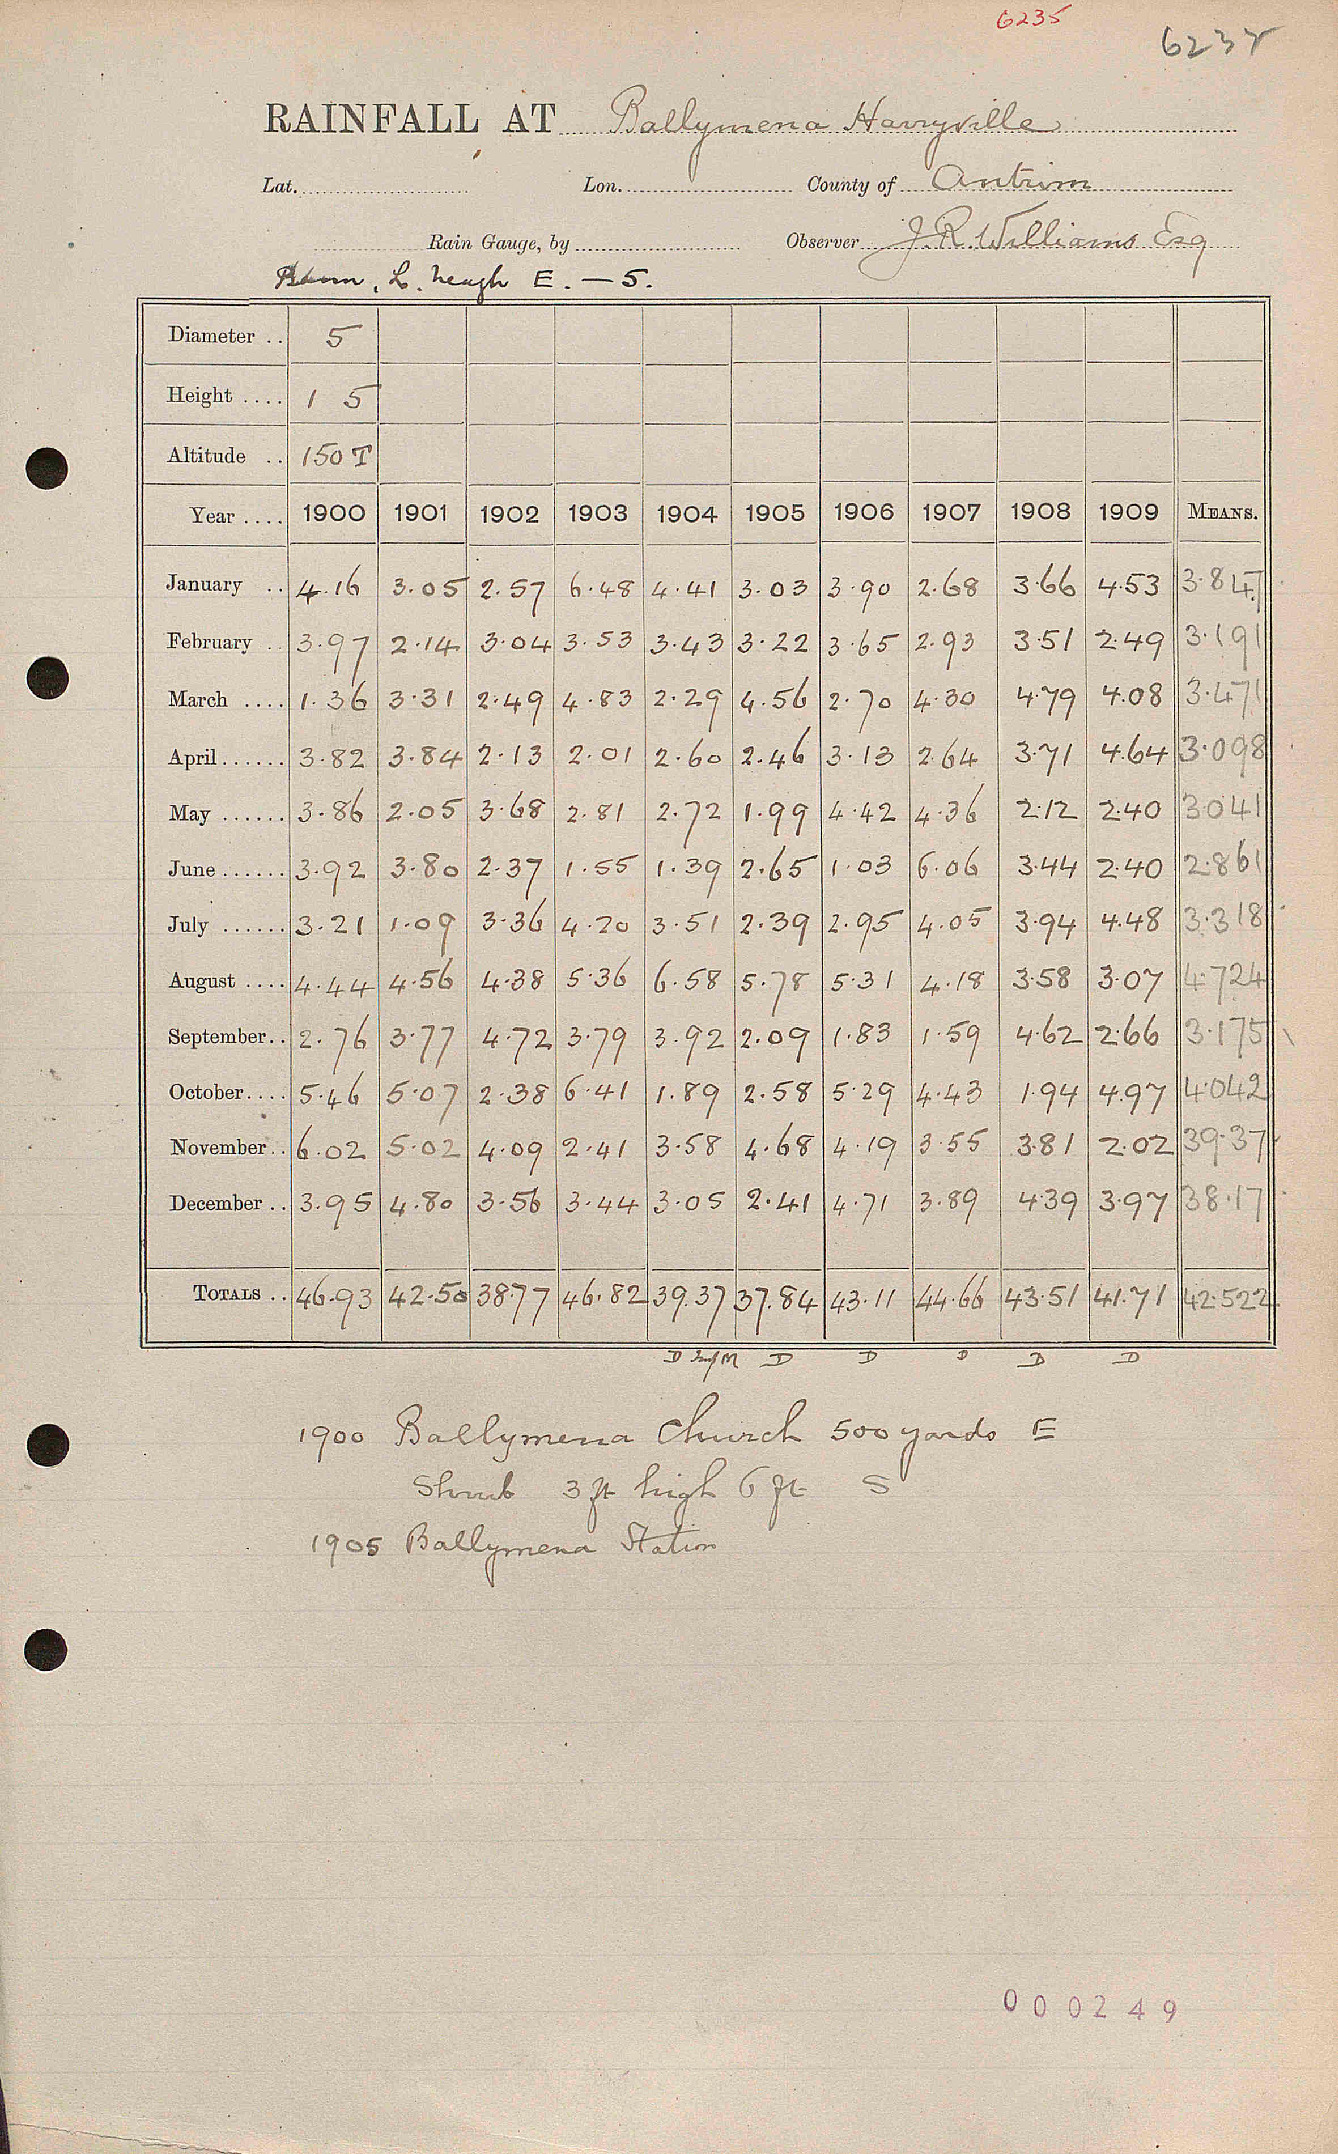 6235
6232
RAINFALL AT Ballymena Harryville
Lat. Lon. County of Antrim
Rain Gauge, by Observer J. R. Williams Esq
Bann, L. Neagh E. — 5.
Diameter .. 5
Height .... 1 5
Altitude .. 150 T
Year .... 1900 1901 1902 1903 1904 1905 1906 1907 1908 1909 MEANS.
January .. 4.16 3.05 2.57 6.48 4.41 3.03 3.90 2.68 3.66 4.53 3.847
February .. 3.97 2.14 3.04 3.53 3.43 3.22 3.65 2.93 3.51 2.49 3.191
March .... 1.36 3.31 2.49 4.83 2.29 4.56 2.70 4.30 4.79 4.08 3.471
April...... 3.82 3.84 2.13 2.01 2.60 2.46 3.13 2.64 3.71 4.64 3.098
May ...... 3.86 2.05 3.68 2.81 2.72 1.99 4.42 4.36 2.12 2.40 3041
June...... 3.92 3.80 2.37 1.55 1.39 2.65 1.03 6.06 3.44 2.40 2.861
July ...... 3.21 1.09 3.36 4.20 3.51 2.39 2.95 4.05 3.94 4.48 3.318
August .... 4.44 4.56 4.38 5.36 6.58 5.78 5.31 4.18 3.58 3.07 4.724
September.. 2.76 3.77 4.72 3.79 3.92 2.09 1.83 1.59 4.62 2.66 3.175
October.... 5.46 5.07 2.38 6.41 1.89 2.58 5.29 4.43 1.94 4.97 4.042
November.. 6.02 5.02 4.09 2.41 3.58 4.68 4.19 3.55 3.81 2.02 39.37
December .. 3.95 4.80 3.56 3.44 3.05 2.41 4.71 3.89 4.39 3.97 38.17
TOTALS .. 46.93 42.50 38.77 46.82 39.37 37.84 43.11 44.66 43.51 41.71 42.522
D D D D D D
1900 Ballymena Church 500 yards E
Shrub 3 ft high 6 ft S
1905 Ballymena Station
000249